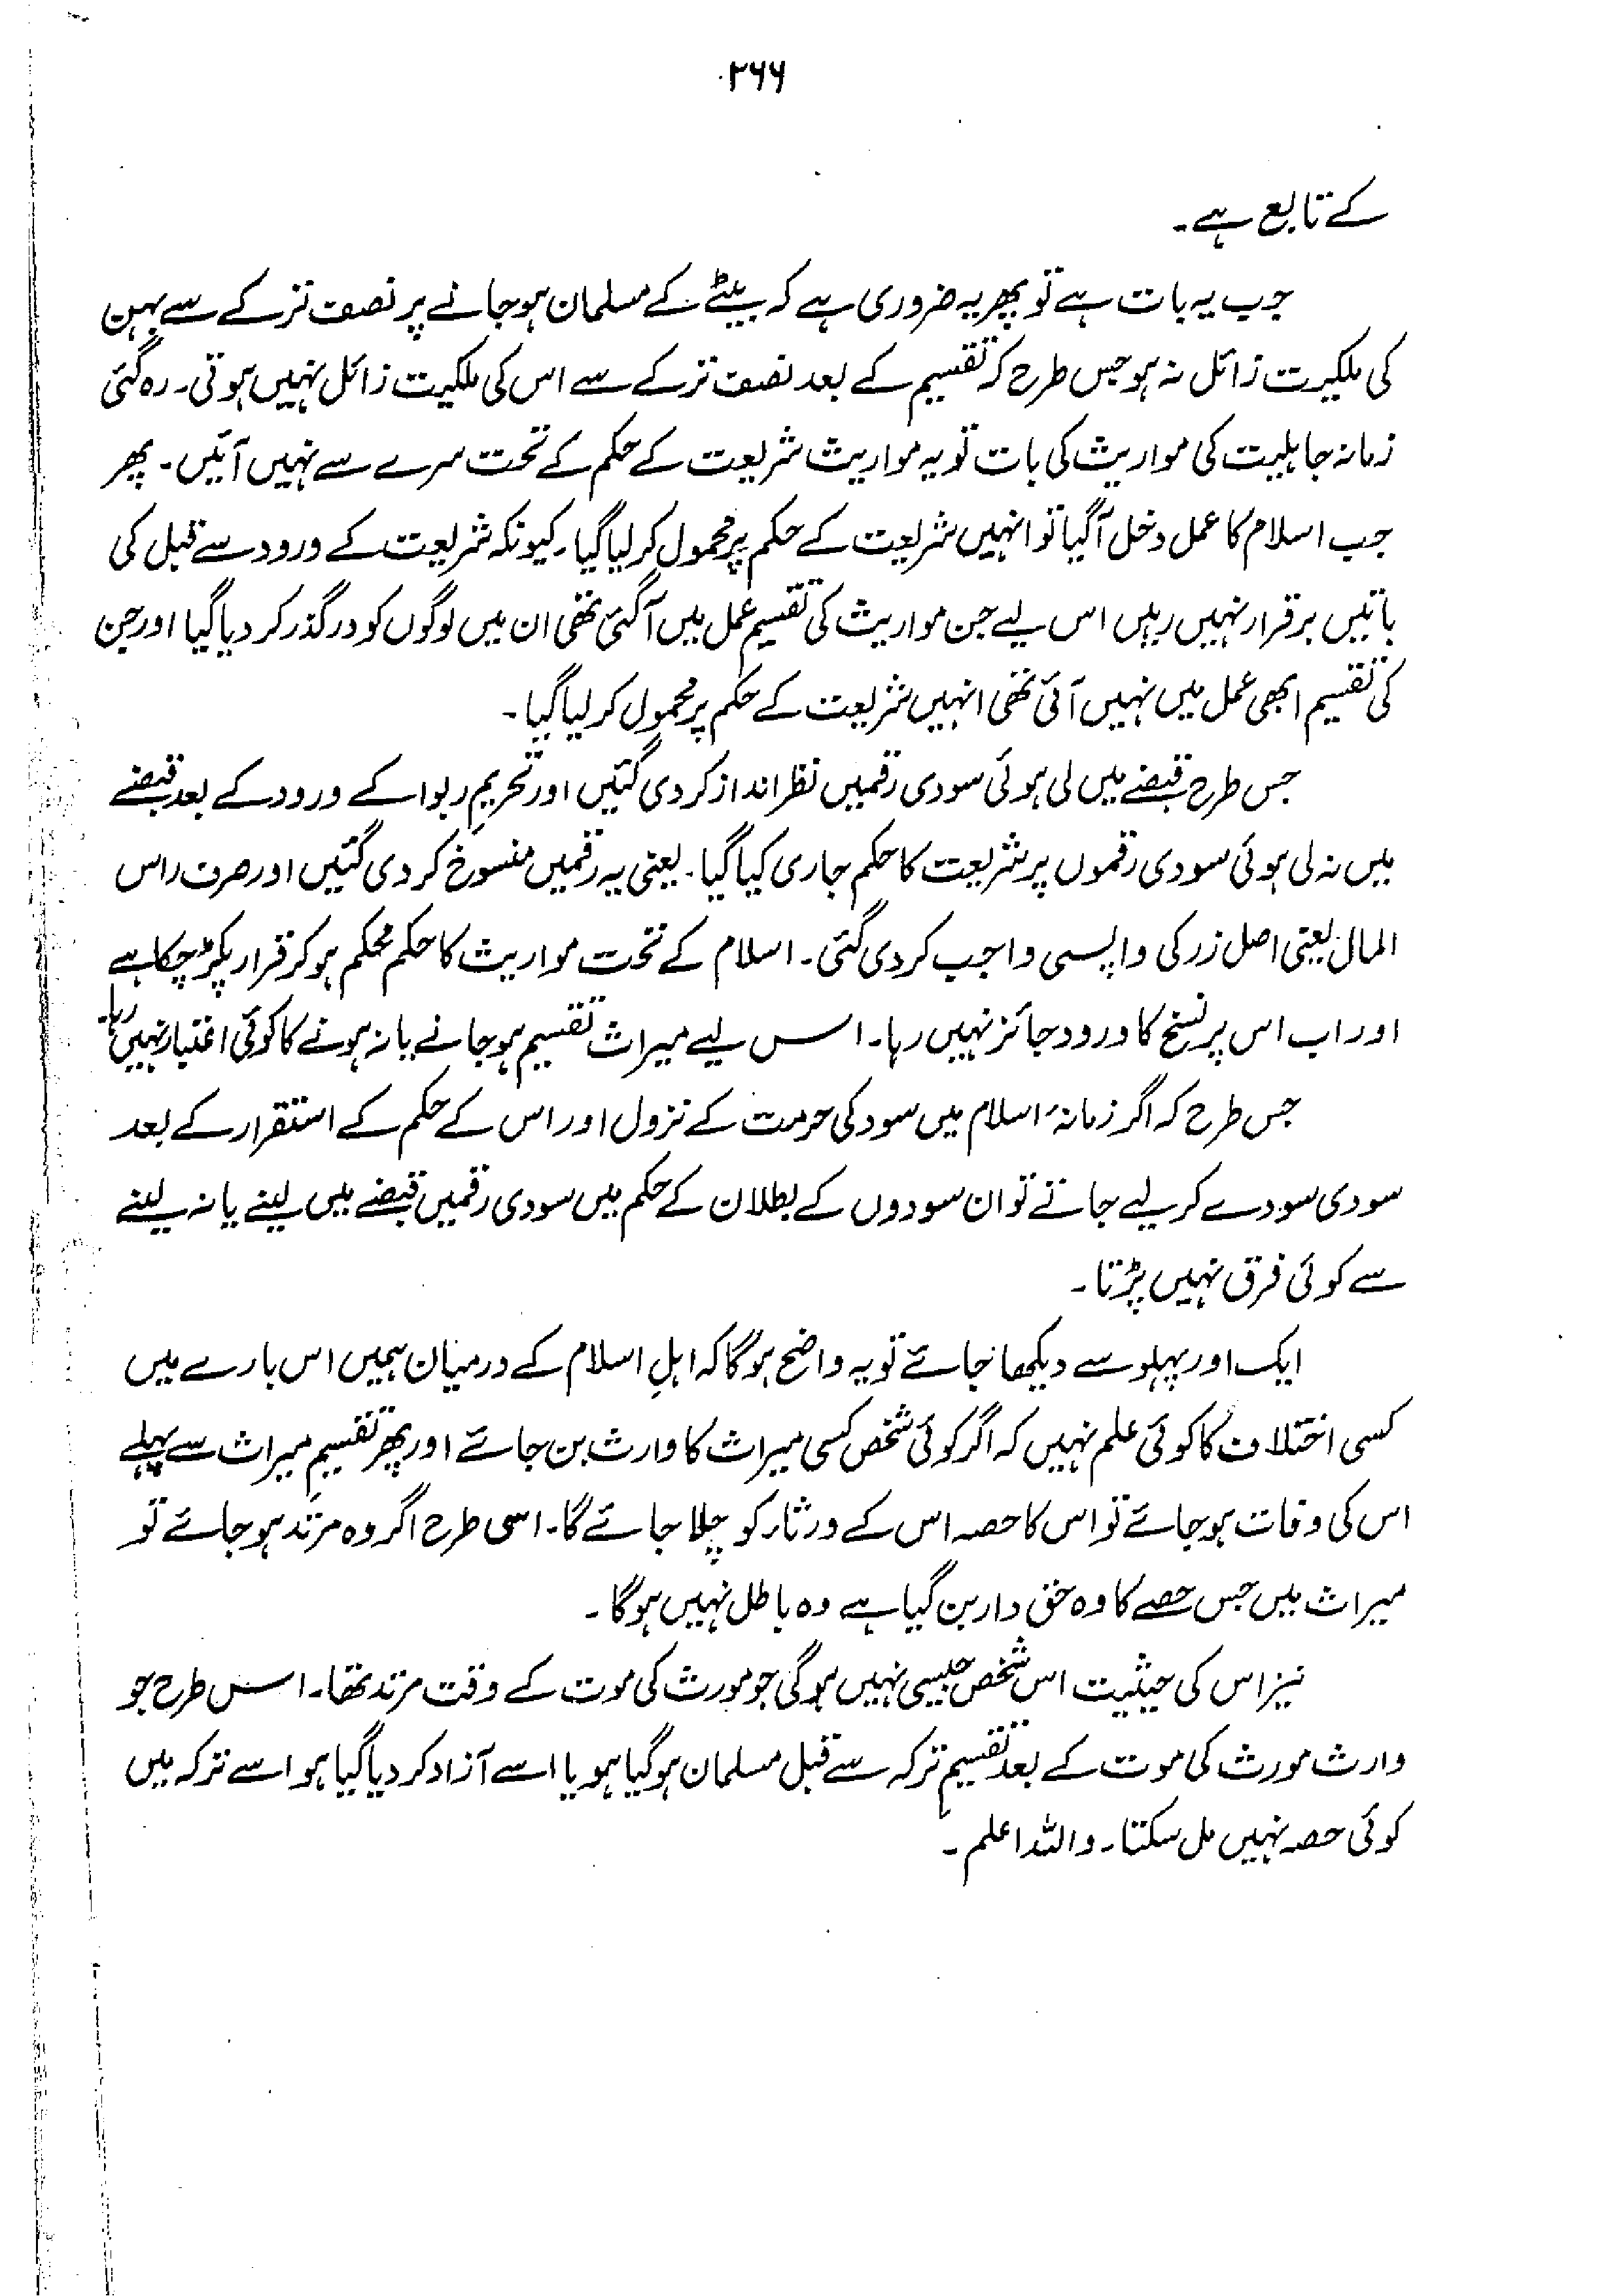 ۲۶۶
کے تابع ہے۔
جب یہ بات ہے تو پھر یہ ضروری ہے کہ بیٹے کے مسلمان ہو جانے پر نصف ترکے سے بہن
کی ملکیت زائل نہ ہو جس طرح کہ تقسیم کے بعد نصف ترکے سے اس کی ملکیت زائل نہیں ہوتی۔ رہ گئی
زمانہ جاہلیت کی مواریث کی بات تو یہ مواریث شریعت کے حکم کے تحت سرے سے نہیں آئیں۔ پھر
جب اسلام کا عمل دخل آگیا تو انہیں شریعت کے حکم پر محمول کر لیا گیا۔ کیونکہ شریعت کے ورود سے قبل کی
باتیں برقرار نہیں رہیں اس لیے جن مواریث کی تقسیم عمل میں آگئی تھی ان میں لوگوں کو درگذر کر دیا گیا اور جن
کی تقسیم ابھی عمل میں نہیں آئی تھی انہیں شریعت کے حکم پر محمول کر لیا گیا۔
جس طرح قبضے میں لی ہوئی سودی رقمیں نظر انداز کر دی گئیں اور تحریمِ ربوا کے ورود کے بعد قبضے
میں نہ لی ہوئی سودی رقموں پر شریعت کا حکم جاری کیا گیا۔ یعنی یہ رقمیں منسوخ کر دی گئیں اور صرف راس
المال یعنی اصل زر کی واپسی واجب کر دی گئی۔ اسلام کے تحت مواریث کا حکم محکم ہو کر قرار پکڑ چکا ہے
اور اب اس پر نسخ کا ورود جائز نہیں رہا۔ اس لیے میراث تقسیم ہو جانے یا نہ ہونے کا کوئی اعتبار نہیں رہا۔
جس طرح کہ اگر زمانۂ اسلام میں سود کی حرمت کے نزول اور اس کے حکم کے استقرار کے بعد
سودی سودے کر لیے جاتے تو ان سودوں کے بطلان کے حکم میں سودی رقمیں قبضے میں لینے یا نہ لینے
سے کوئی فرق نہیں پڑتا۔
ایک اور پہلو سے دیکھا جائے تو یہ واضح ہوگا کہ اہلِ اسلام کے درمیان ہمیں اس بارے میں
کسی اختلاف کا کوئی علم نہیں کہ اگر کوئی شخص کسی میراث کا وارث بن جائے اور پھر تقسیمِ میراث سے پہلے
اس کی وفات ہو جائے تو اس کا حصہ اس کے ورثاء کو چلا جائے گا۔ اسی طرح اگر وہ مرتد ہو جائے تو
میراث میں جس حصے کا وہ حق دار بن گیا ہے وہ باطل نہیں ہوگا۔
نیز اس کی حیثیت اس شخص جیسی نہیں ہوگی جو مورث کی موت کے وقت مرتد تھا۔ اس طرح جو
وارث مورث کی موت کے بعد تقسیمِ ترکہ سے قبل مسلمان ہو گیا ہو یا اسے آزاد کر دیا گیا ہو اسے ترکہ میں
کوئی حصہ نہیں مل سکتا۔ واللہ اعلم۔